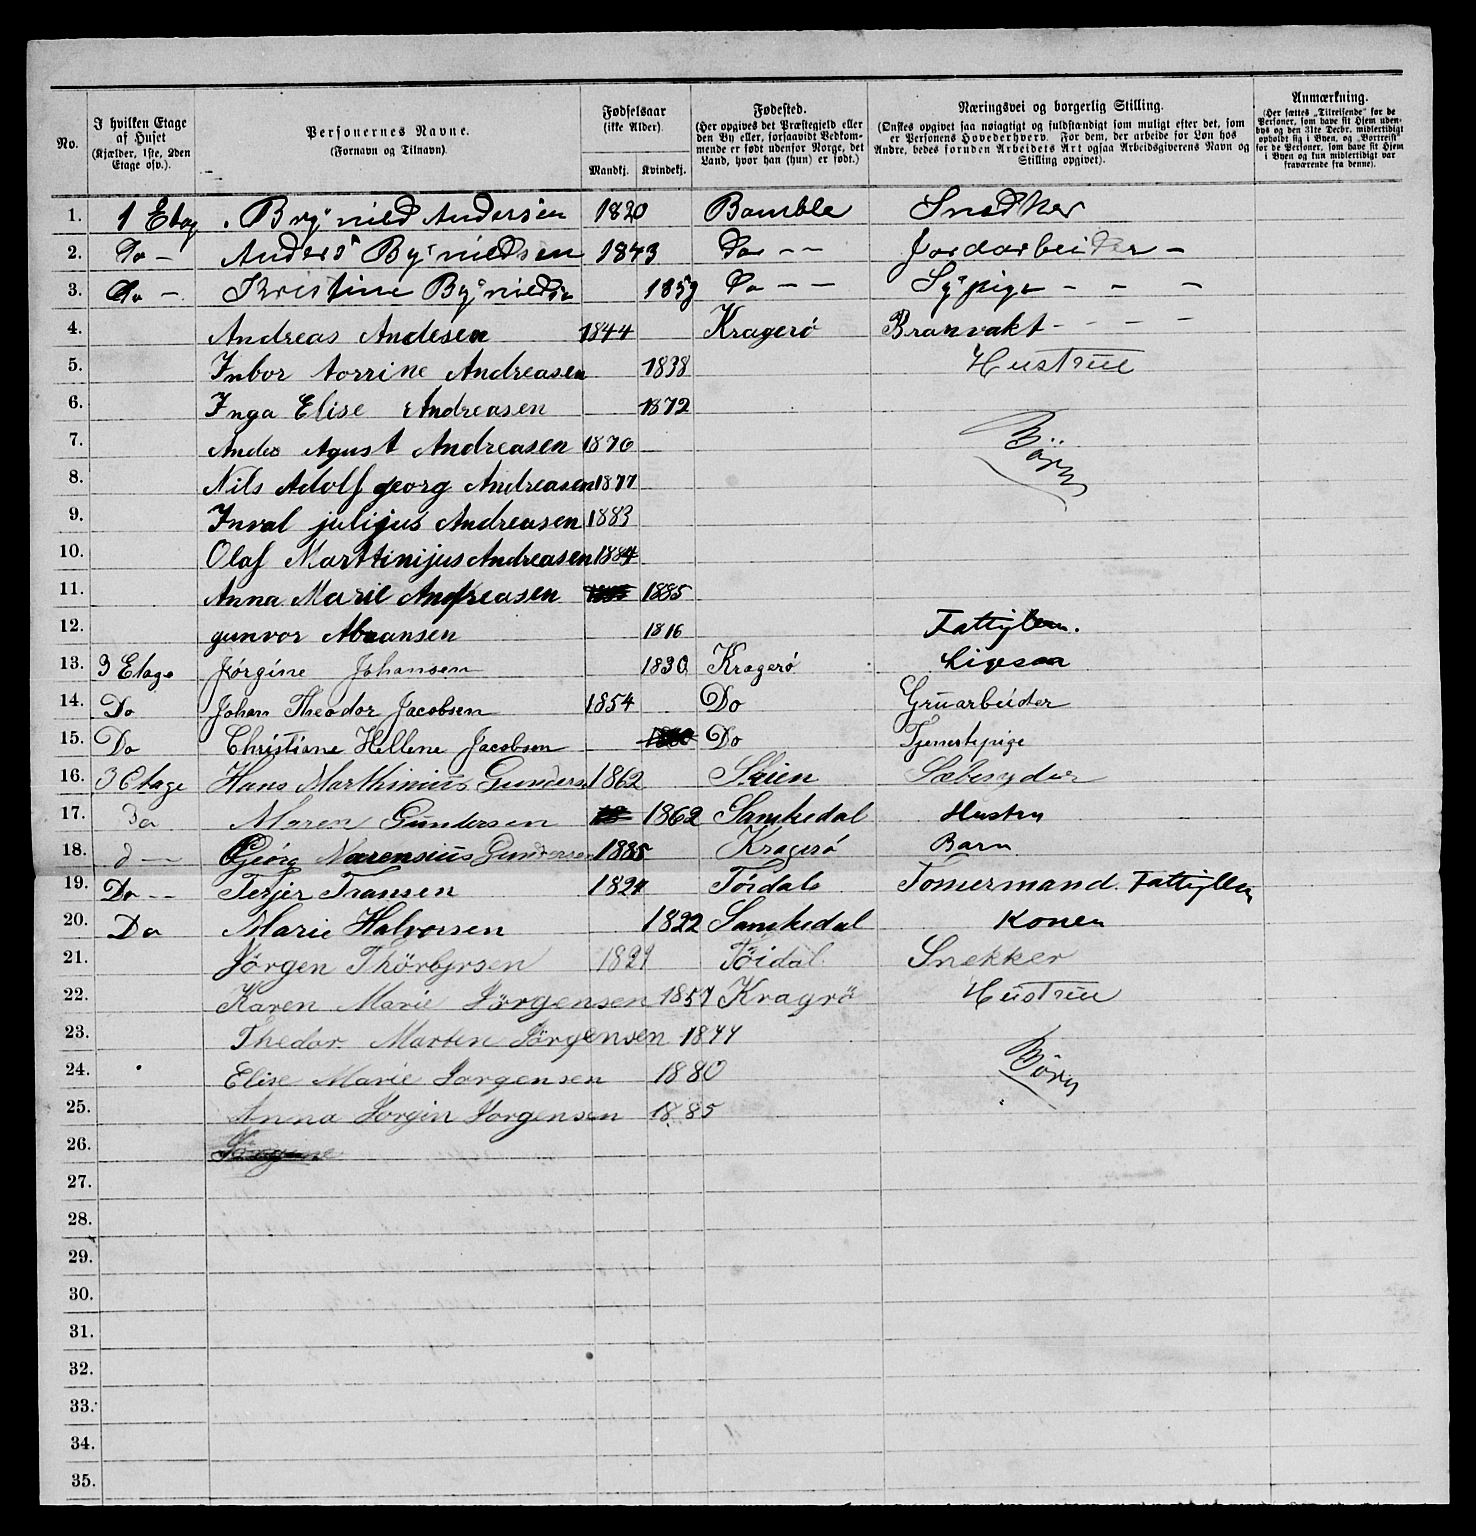 No. | I hvilken Etage af Huset (Kjælder, 1ste, 2den Etage osv.). | Personernes Navne. (Fornavn og Tilnavn). | Fødselsaar (ikke Alder). Mandkj. Kvindekj. | Fødested. (Her opgives det Præstegjeld eller den By eller, forsaavidt Vedkommende er født udenfor Norge, det Land, hvor han (hun) er født.) | Næringsvei og borgerlig Stilling. (Ønskes opgivet saa nøiagtigt og fuldstændigt som muligt efter det, som er Personens Hovederhverv. For dem, der arbeide for Løn hos Andre, bedes foruden Arbeidets Art ogsaa Arbeidsgiverens Navn og Stilling opgivet). | Anmærkning. (Her sættes „Tilreisende" for de Personer, som have sit Hjem udenbys og den 31te Decbr. midlertidigt opholdt sig i Byen, og „Bortreist" for de Personer, som have sit Hjem i Byen og kun midlertidigt var fraværende fra denne).
1. 1 Etag Andersen 1820 Bamble Snedker
2. Do - Anders 1843 Do - - Jordarbeider -
3. Do - Kristine 1859 Do - - Sypige - - -
4. Andreas Andesen 1844 Kragerø Branvakt - - - -
5. Inbor torrine Andreasen 1838 Hustrue
6. Inga Elise Andreasen 1872
7. Andes Agust Andreasen 1870 Börn
8. Nils Adolf georg Andreasen 1877
9. Inval julijus Andreasen 1883
10. Olaf Marttinijus Andreasen 1884
11. Anna Marie Andreasen 1885
12. gunvor 1816 Fattiglem.
13. 3 Etage Jørgine Johansen 1830 Kragerö Ligesaa
14. Do Johan Theodor Jacobsen 1854 Do Gruarbeider
15. Do Christiane Hellene Jacobsen Do Tjenestepige
16. 3 Etage Hans Marthinius Gunders 1862 Skien
17. Do Maren Gundersen 1862 Samkedal Hustru
18. d - Georg Gundersen 1885 Kragerö Barn
19. Do - - Terjer Fransen 1821 Tördal Tømermand. Fattiglem
20. Do Marie Halvorsen 1822 Samkedal Konen
21. Jörgen Thörbjrsen 1821 Töidal Snekker
22. Karen Marie Jörgensen 1857 Kragrö Hustrue
23. Thedor Marten Jörgensen 1877
24. Elise Marie Jorgensen 1880 Börn
25. Anna Jorgin Jorgensen 1885
26.
27.
28.
29.
30.
31.
32.
33.
34.
35.